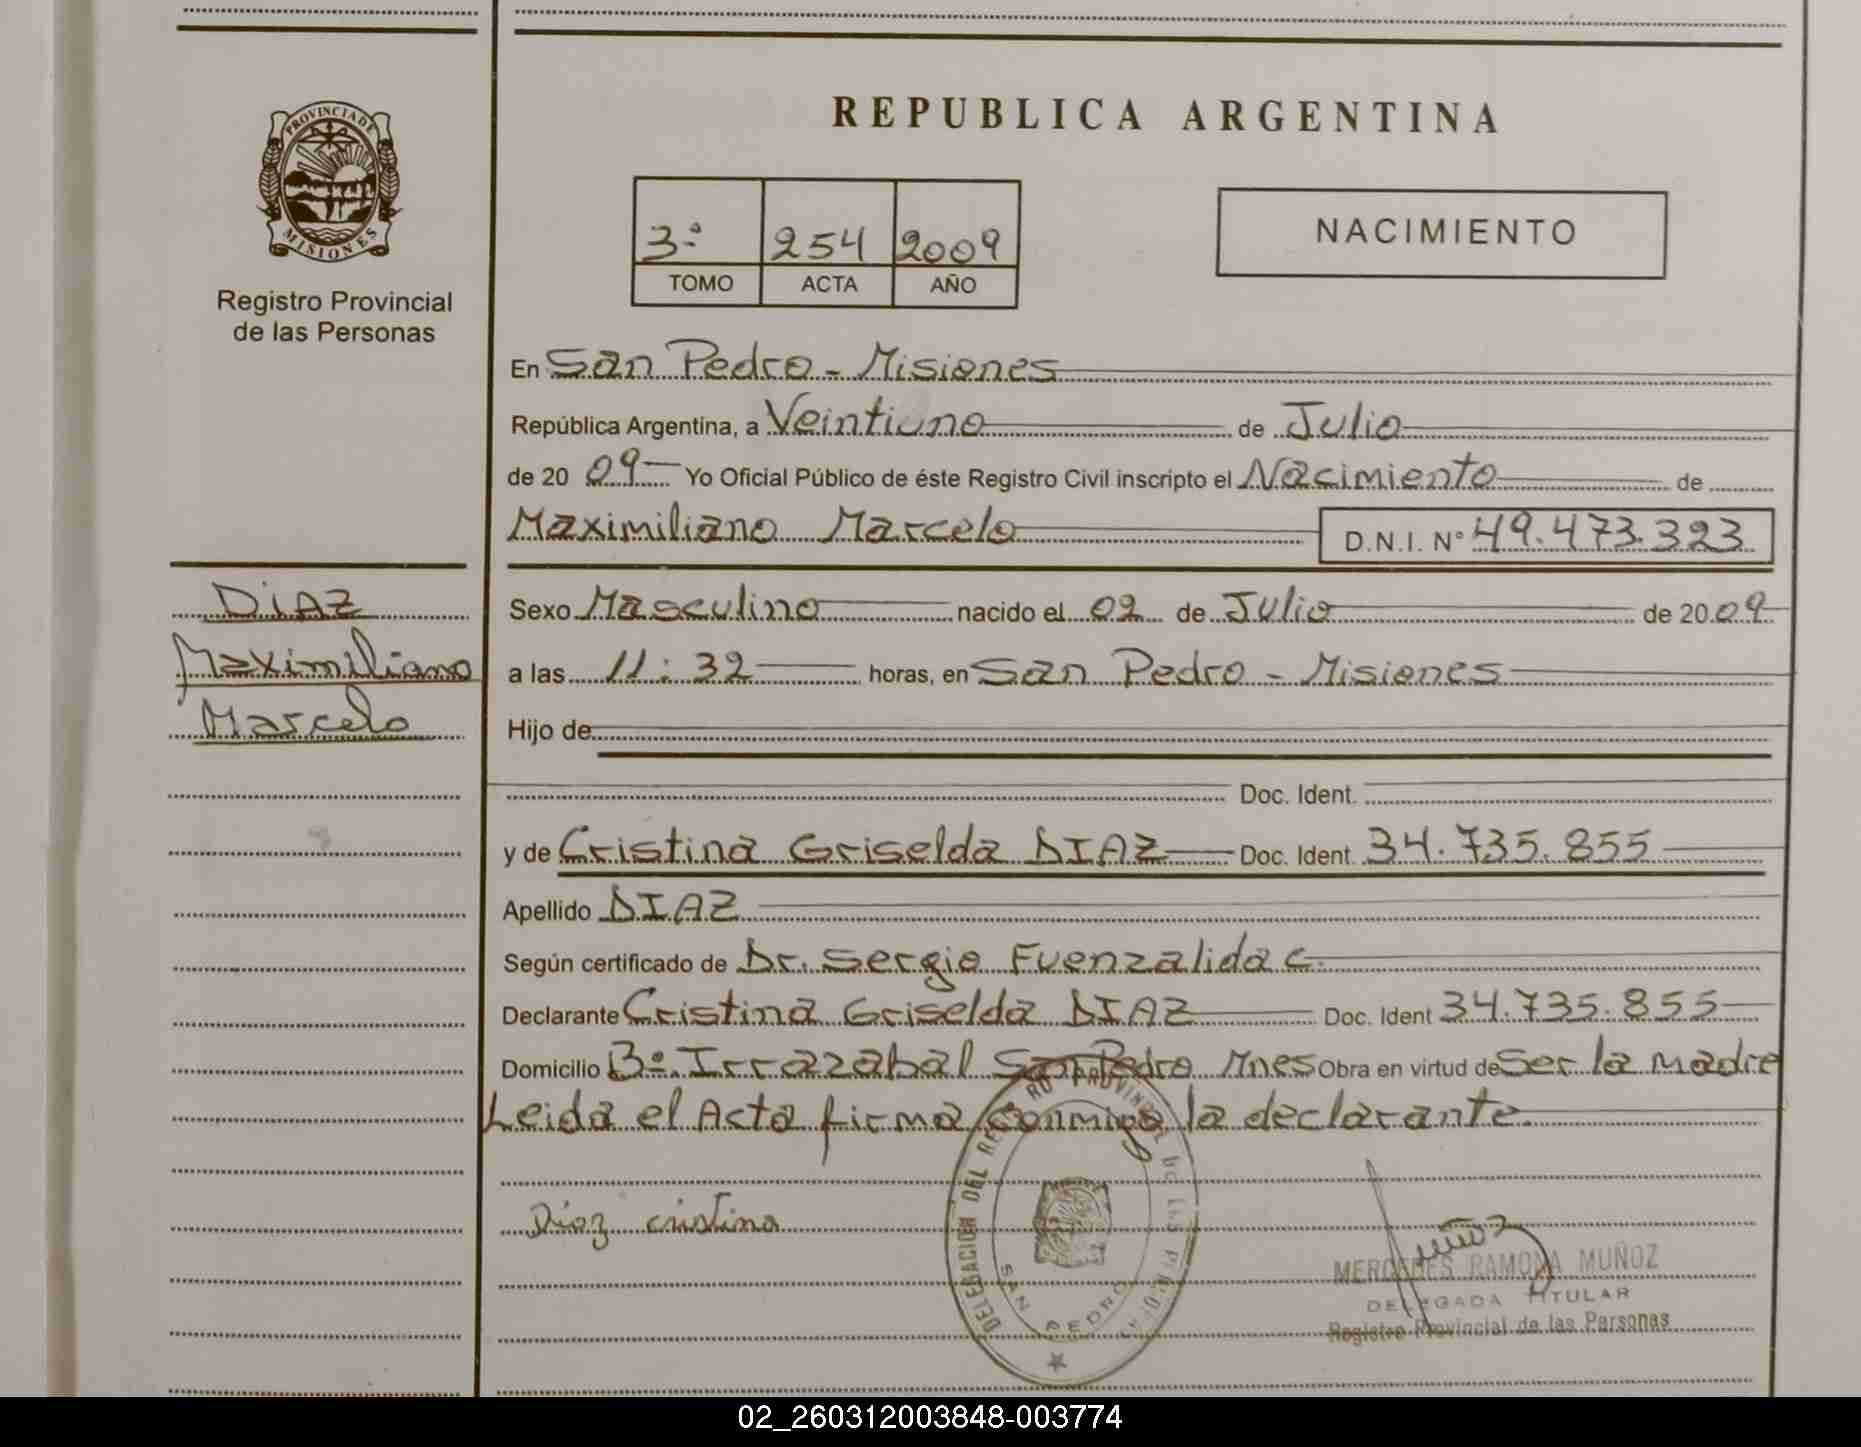 PROVINCIA DE
MISIONES
Registro Provincial
de las Personas
REPUBLICA ARGENTINA
3º 254 2009
TOMO ACTA AÑO
NACIMIENTO
En San Pedro - Misiones
República Argentina, a Veintiuno de Julio
de 20 09 Yo Oficial Público de éste Registro Civil inscripto el Nacimiento de
Maximiliano Marcelo D.N.I. Nº 49.473.323
DiAZ
Maximiliano
Marcelo
Sexo Masculino nacido el 02 de Julio de 20 09
a las 11:32 horas, en San Pedro - Misiones
Hijo de
Doc. Ident.
y de Cristina Griselda DIAZ Doc. Ident. 34.735.855
Apellido DIAZ
Según certificado de Dr. Sergio Fuenzalida C.
Declarante Cristina Griselda DIAZ Doc. Ident 34.735.855
Domicilio Bº. Irrazabal San Pedro Mnes Obra en virtud de Ser la madre
Leida el Acta firma conmigo la declarante.
DELEGACION DEL REGISTRO PROVINCIAL DE LAS PERSONAS
SAN PEDRO
Diaz cristina
Muñoz
MERCEDES RAMONA MUÑOZ
DELEGADA TITULAR
Registro Provincial de las Personas
02_260312003848-003774